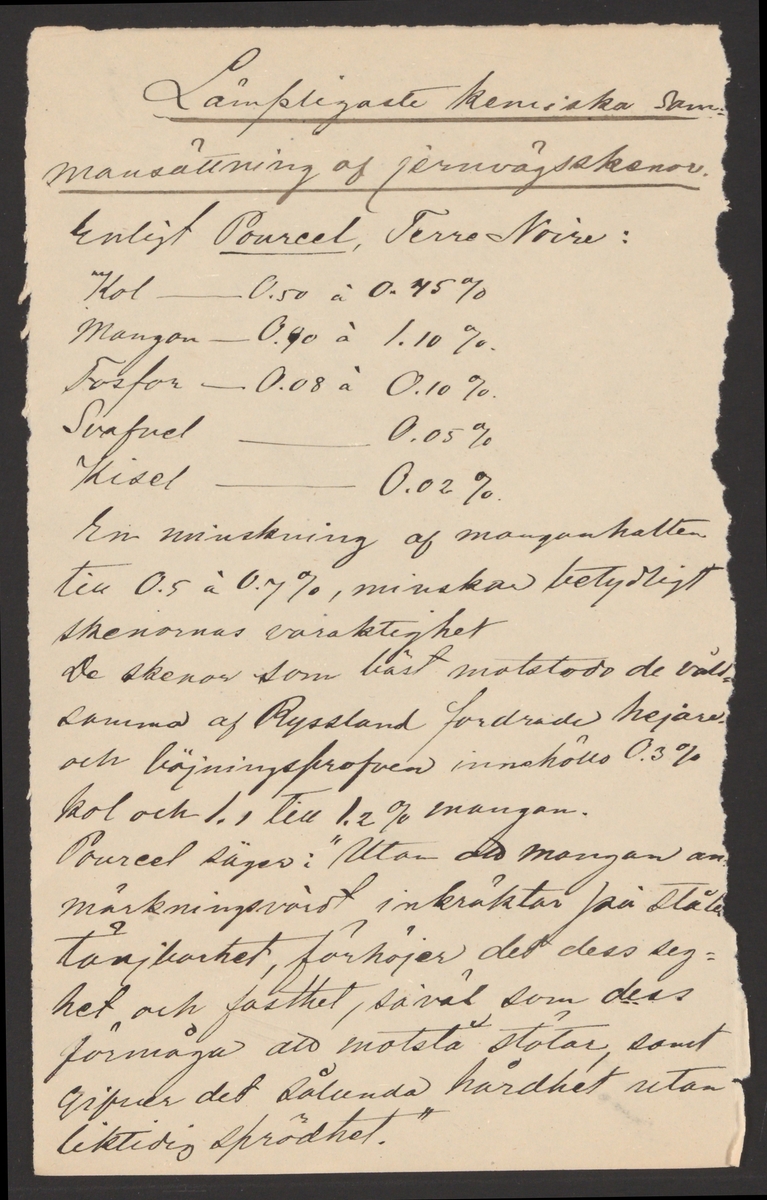 Lämpligaste kemiska sam-
mansättning af jernvägsskenor.
Enligt Pourcel, Terre-Noire:
Kol — 0.50 à 0.75 %
Mangan — 0.90 à 1.10 %.
Fosfor — 0.08 à 0.10 %.
Svafvel — 0.05 %
Kisel — 0.02 %.
En minskning af manganhalten
till 0.5 à 0.7 %, minskar betydligt
skenornas varaktighet
De skenor som bäst motstodo de våld=
samma af Ryssland fordrade hejare-
och böjningsprofven innehöllo 0.3 %
kol och 1.1 till 1.2 % mangan.
Pourcel säger: "Utan att mangan an-
märkningsvärdt inkräktar på stålets
tänjbarhet, förhöjer det dess seg=
het och fasthet, såväl som dess
förmåga att motstå stötar, samt
gifver det sålunda hårdhet utan
liktidig sprödhet."